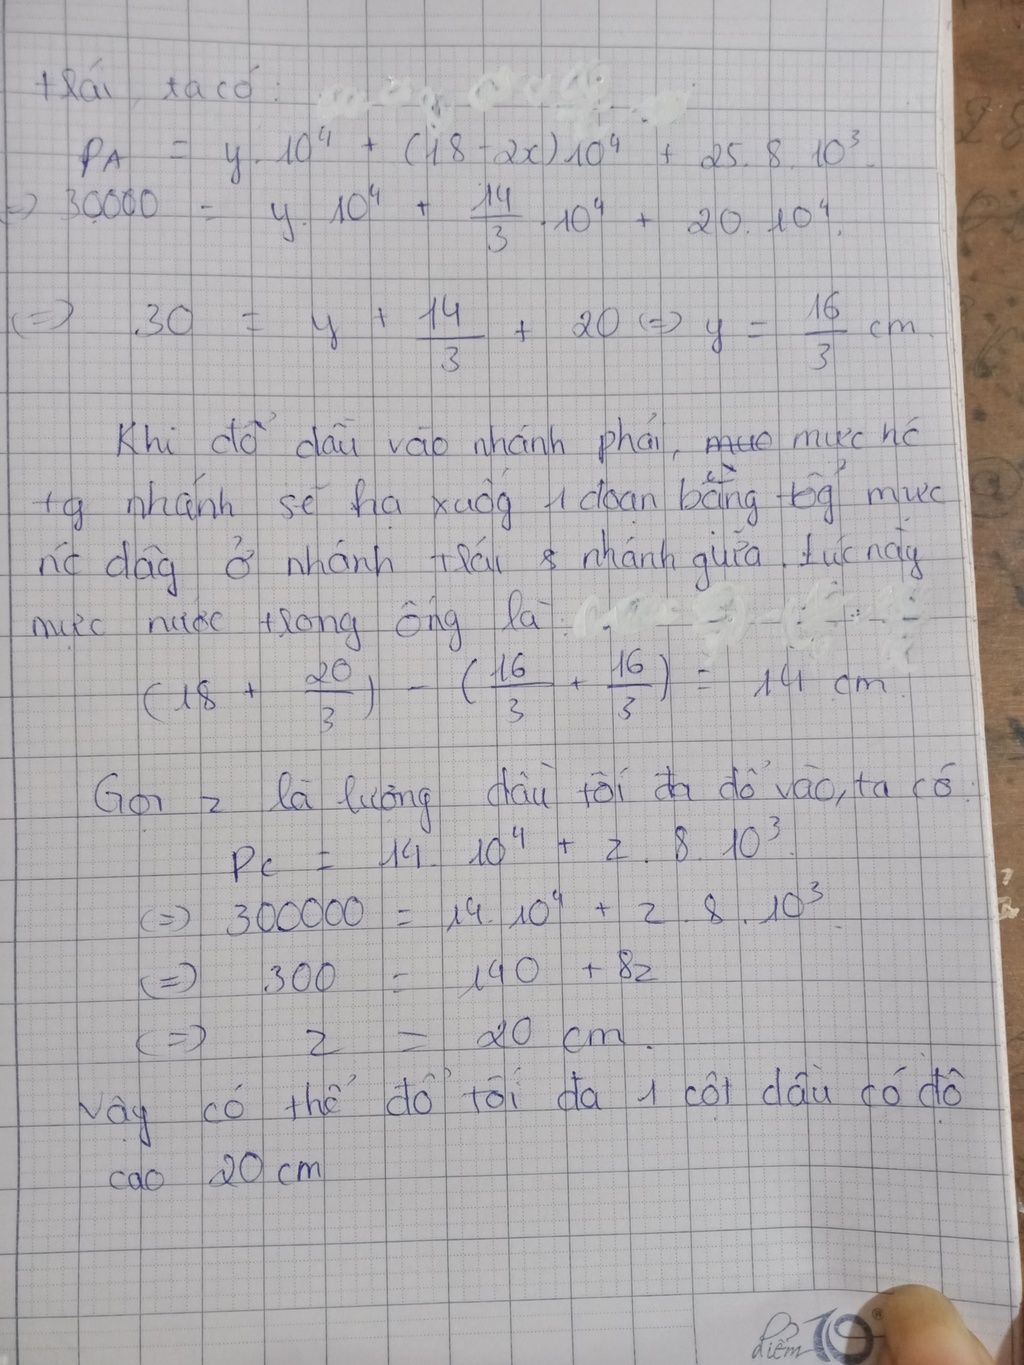 trái, ta có:
PA = y. 10⁴ + (18 - 2x) 10⁴ + 25. 8. 10³.
=> 30000 = y. 10⁴ + 14/3 . 10⁴ + 20. 10⁴.
<=> 30 = y + 14/3 + 20 <=> y = 16/3 cm.
Khi đổ dầu vào nhánh phải, mực nc
tg nhánh sẽ hạ xuốg 1 đoạn bằng tổg mực
nc dâg ở nhánh trái & nhánh giữa. Lúc này
mực nước trong ống là:
(18 + 20/3) - (16/3 + 16/3) = 14 cm
Gọi z là lượng dầu tối đa đổ vào, ta có:
Pc = 14. 10⁴ + z. 8. 10³.
<=> 300000 = 14. 10⁴ + z. 8. 10³.
<=> 300 = 140 + 8z
<=> z = 20 cm.
Vậy có thể đổ tối đa 1 cột dầu có độ
cao 20 cm
điểm 10 ®